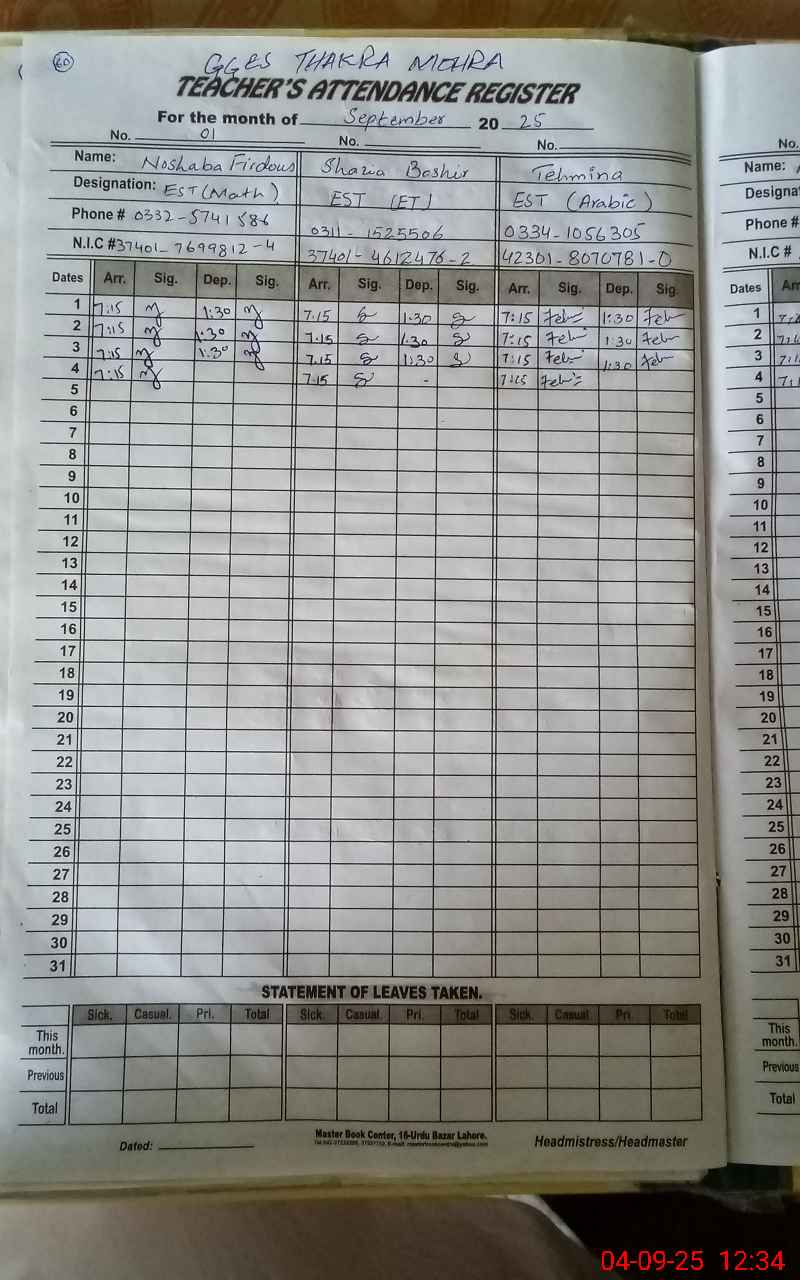 60
GGES THAKRA MOHRA
TEACHER'S ATTENDANCE REGISTER
For the month of September 20 25
No. 01 No. No.
Name: Noshaba Firdous Shazia Bashir Tehmina
Designation: EST (Math) EST (ET) EST (Arabic)
Phone # 0332-5741586 0311-1525506 0334-1056305
N.I.C # 37401-7699812-4 37401-4612476-2 42301-8070781-0
Dates Arr. Sig. Dep. Sig. Arr. Sig. Dep. Sig. Arr. Sig. Dep. Sig.
1 7:15 1:30 7.15 1:30 7:15 1:30
2 7:15 1:30 7.15 1.30 7:15 1:30
3 7:15 1:30 7.15 1:30 7:15 1:30
4 7:15 7.15 - 7:15
5
6
7
8
9
10
11
12
13
14
15
16
17
18
19
20
21
22
23
24
25
26
27
28
29
30
31
STATEMENT OF LEAVES TAKEN.
Sick. Casual. Pri. Total Sick. Casual. Pri. Total Sick. Casual. Pri. Total
This month.
Previous
Total
Master Book Center, 16-Urdu Bazar Lahore.
Dated: Headmistress/Headmaster
No.
Name:
Designa
Phone #
N.I.C #
Dates Arr
1
2
3
4
5
6
7
8
9
10
11
12
13
14
15
16
17
18
19
20
21
22
23
24
25
26
27
28
29
30
31
This month.
Previous
Total
04-09-25 12:34